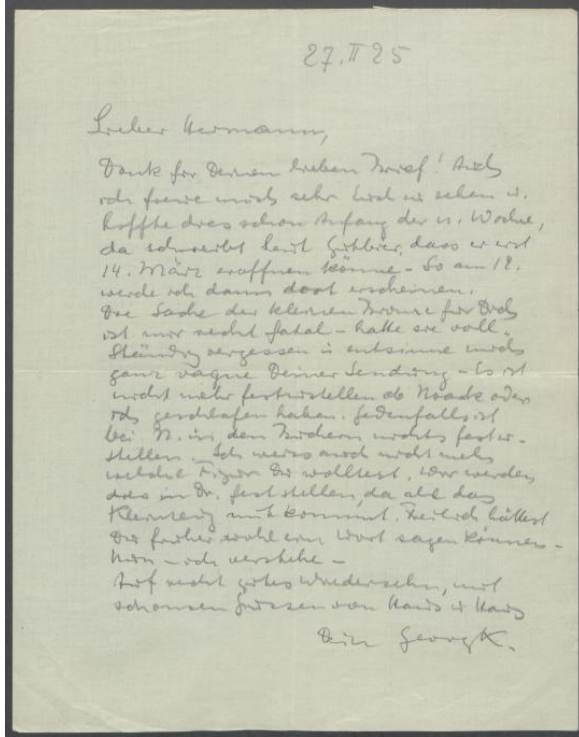 27.II 25
Lieber Hermann,
Dank für Deinen lieben Brief! Auch
ich freue mich sehr Euch zu sehen u.
hoffte dies schon Anfang der n. Woche,
da schreibt heut Gutbier, dass er erst
14. März eröffnen könne – So am 12.
werde ich dann dort erscheinen.
Die Sache der kleinen Bronce für Dich
ist mir recht fatal – hatte sie voll-
ständig vergessen u entsinne mich
ganz vague Deiner Sendung – Es ist
nicht mehr festzustellen ob Noack oder
ich geschlafen haben. Jedenfalls ist
bei N. in den Büchern nichts festzu-
stellen – Ich weiss auch nicht mehr
welche Figur Du wolltest, wir werden
dies in Dr. feststellen, da all das
Kleinzeug mit kommt. Freilich hättest
Du früher wohl ein Wort sagen können –
Nun – ich verstehe –
Auf recht gutes Wiedersehn, mit
schönsten Grüssen von Haus zu Haus
Dein GeorgK.